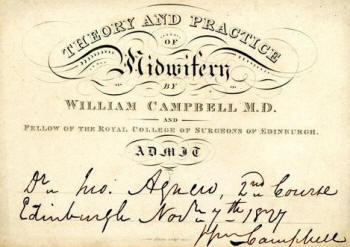 THEORY AND PRACTICE
OF
Midwifery
BY
WILLIAM CAMPBELL M.D.
AND
FELLOW OF THE ROYAL COLLEGE OF SURGEONS OF EDINBURGH.
ADMIT
Dr Jno. Agnew, 2nd Course
Edinburgh Novr 7th 1827
Wm Campbell